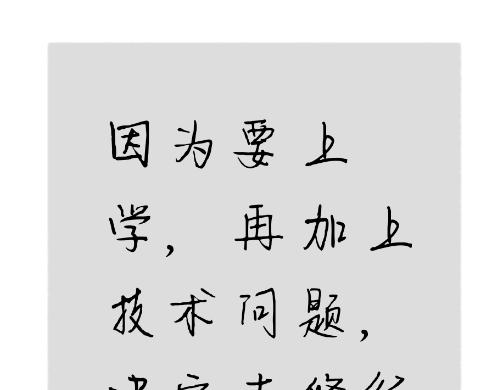 因为要上
学，再加上
技术问题，